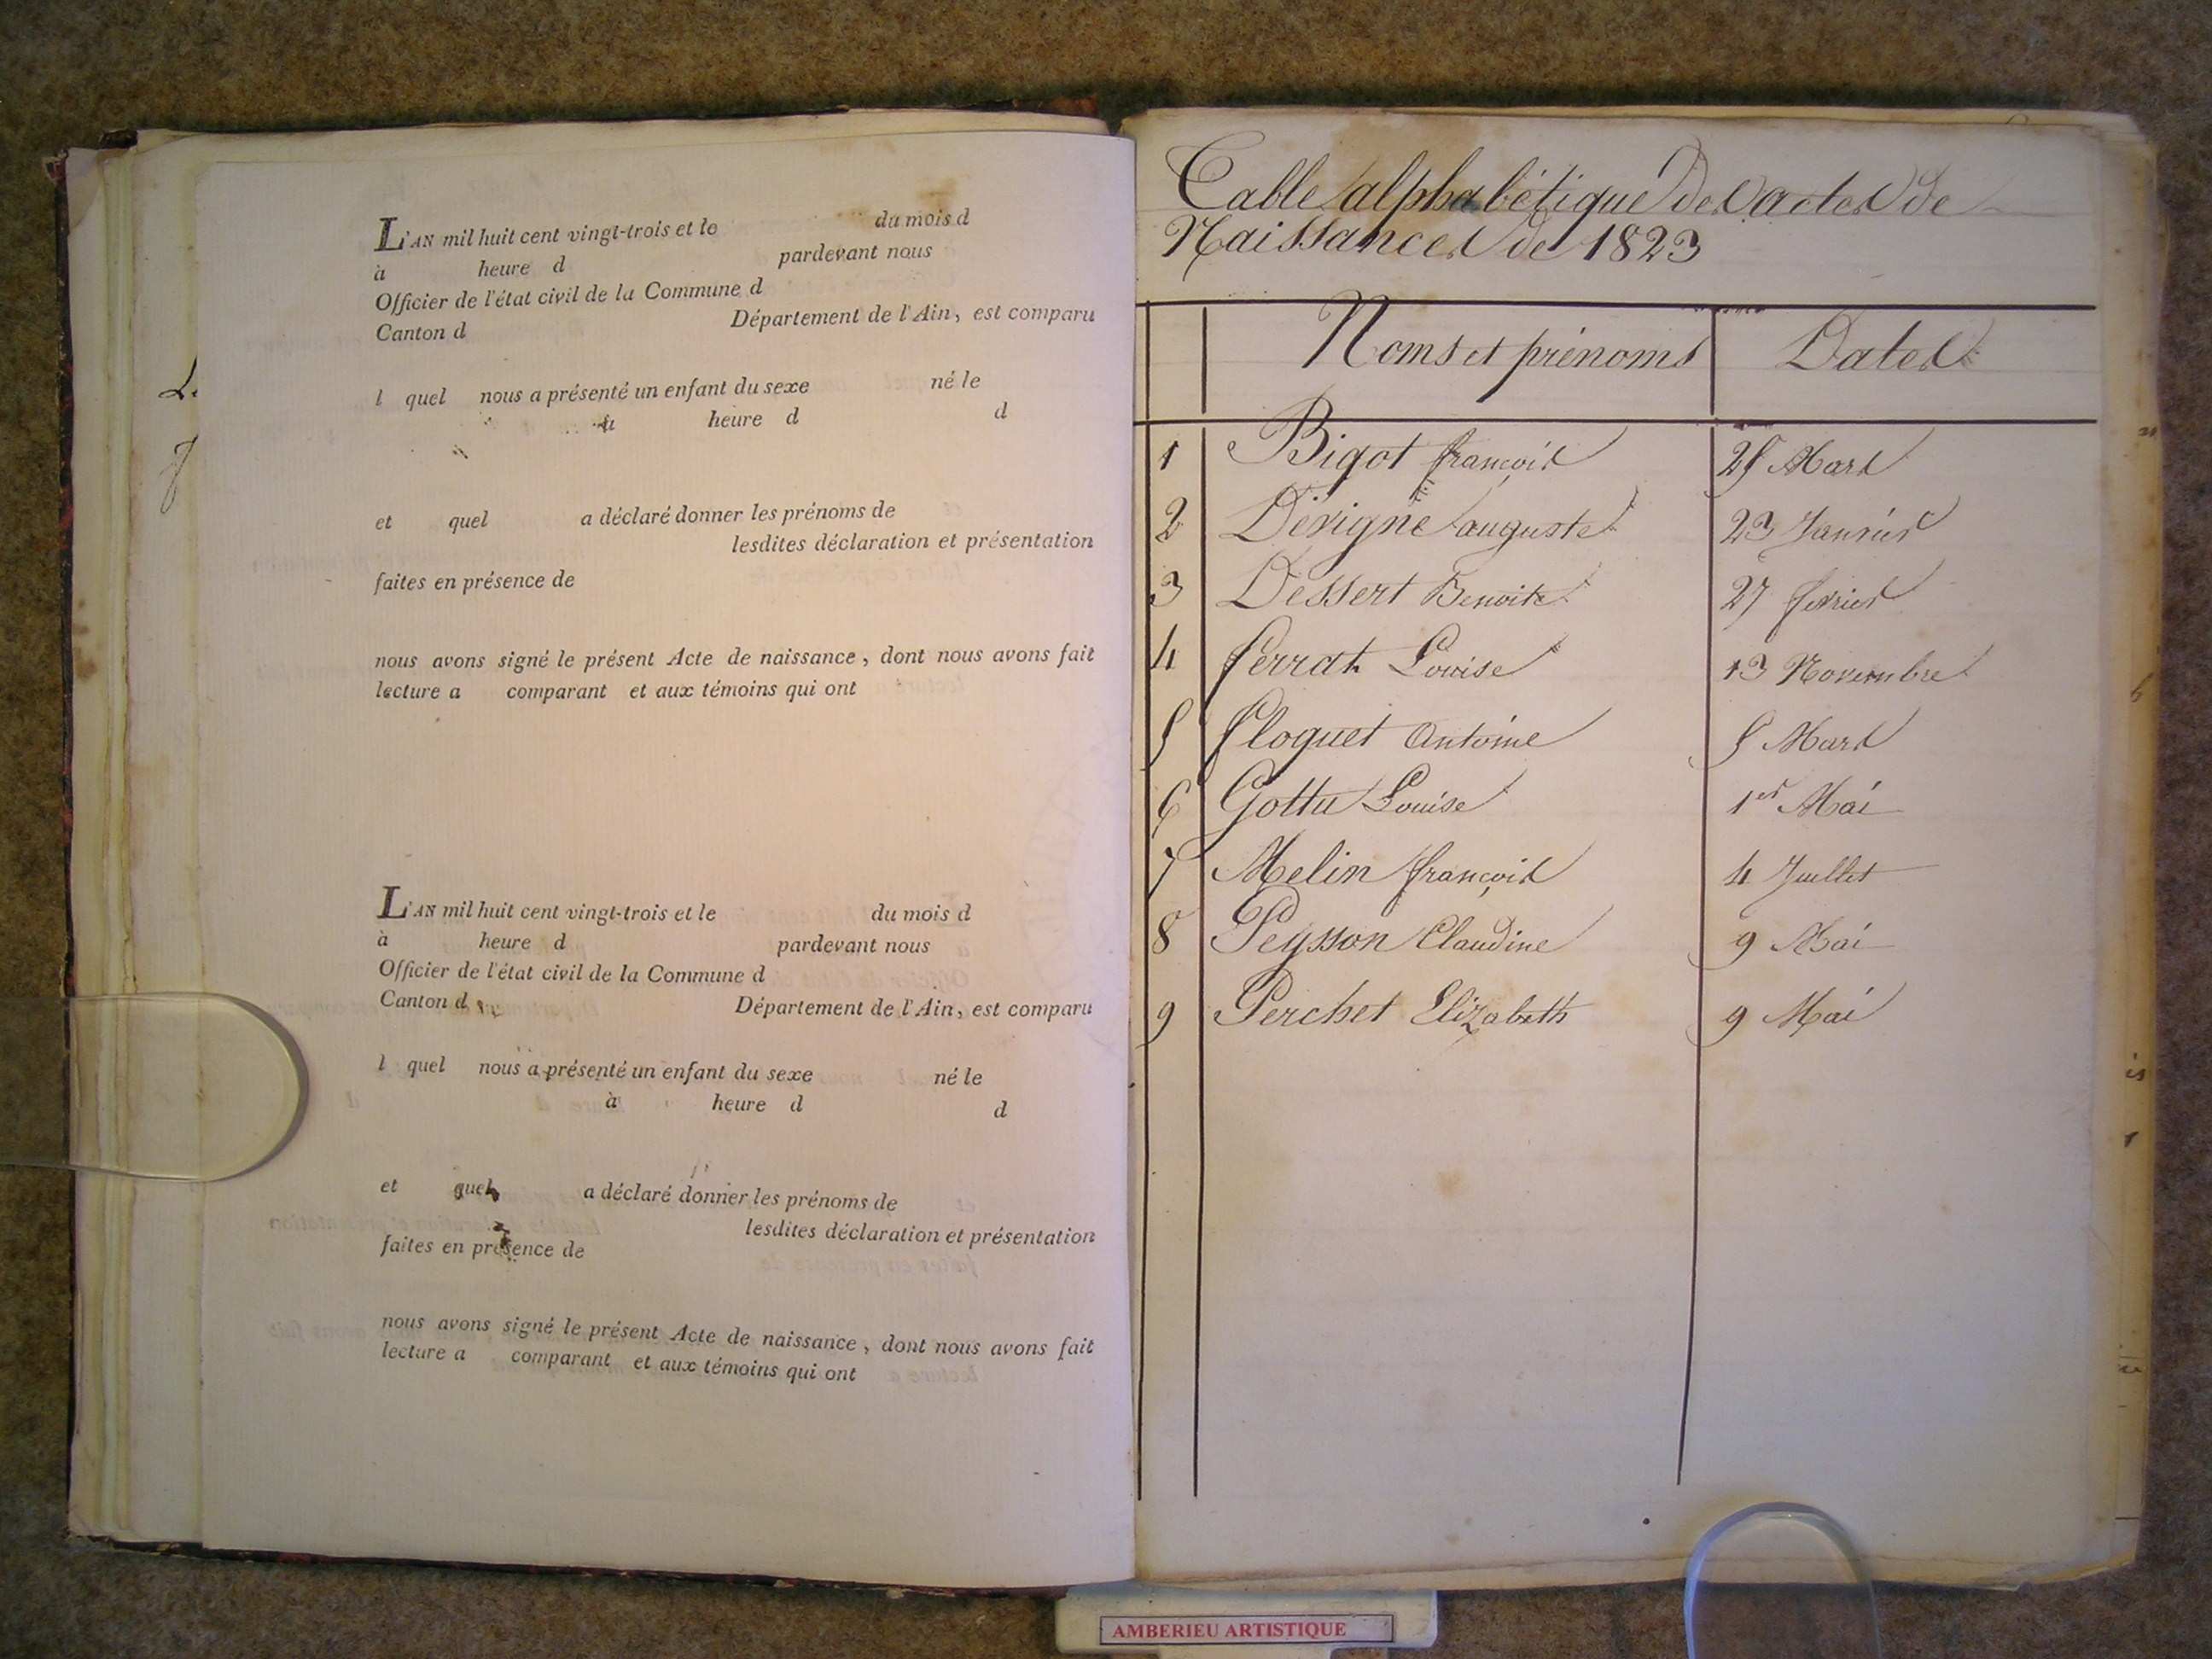 L'AN mil huit cent vingt-trois et le du mois d
à heure d pardevant nous
Officier de l'état civil de la Commune d
Canton d Département de l'Ain, est comparu
l quel nous a présenté un enfant du sexe né le
à heure d d
et quel a déclaré donner les prénoms de
lesdites déclaration et présentation
faites en présence de
nous avons signé le présent Acte de naissance, dont nous avons fait
lecture a comparant et aux témoins qui ont
L'AN mil huit cent vingt-trois et le du mois d
à heure d pardevant nous
Officier de l'état civil de la Commune d
Canton d Département de l'Ain, est comparu
l quel nous a présenté un enfant du sexe né le
à heure d d
et quel a déclaré donner les prénoms de
lesdites déclaration et présentation
faites en présence de
nous avons signé le présent Acte de naissance, dont nous avons fait
lecture a comparant et aux témoins qui ont
Table alphabétique des actes de
Naissances de 1823
Noms et prénoms Dates
1 Bigot françois 25 Mars
2 Dévigne auguste 23 Janvier
3 Dessert Benoite 27 fevrier
4 ferrat Louise 13 Novembre
5 floquet Antoine 5 Mars
6 Gottu Louise 1er Mai
7 Melin françois 4 Juillet
8 Peysson Claudine 9 Mai
9 Perchet Elizabeth 9 Mai
AMBERIEU ARTISTIQUE